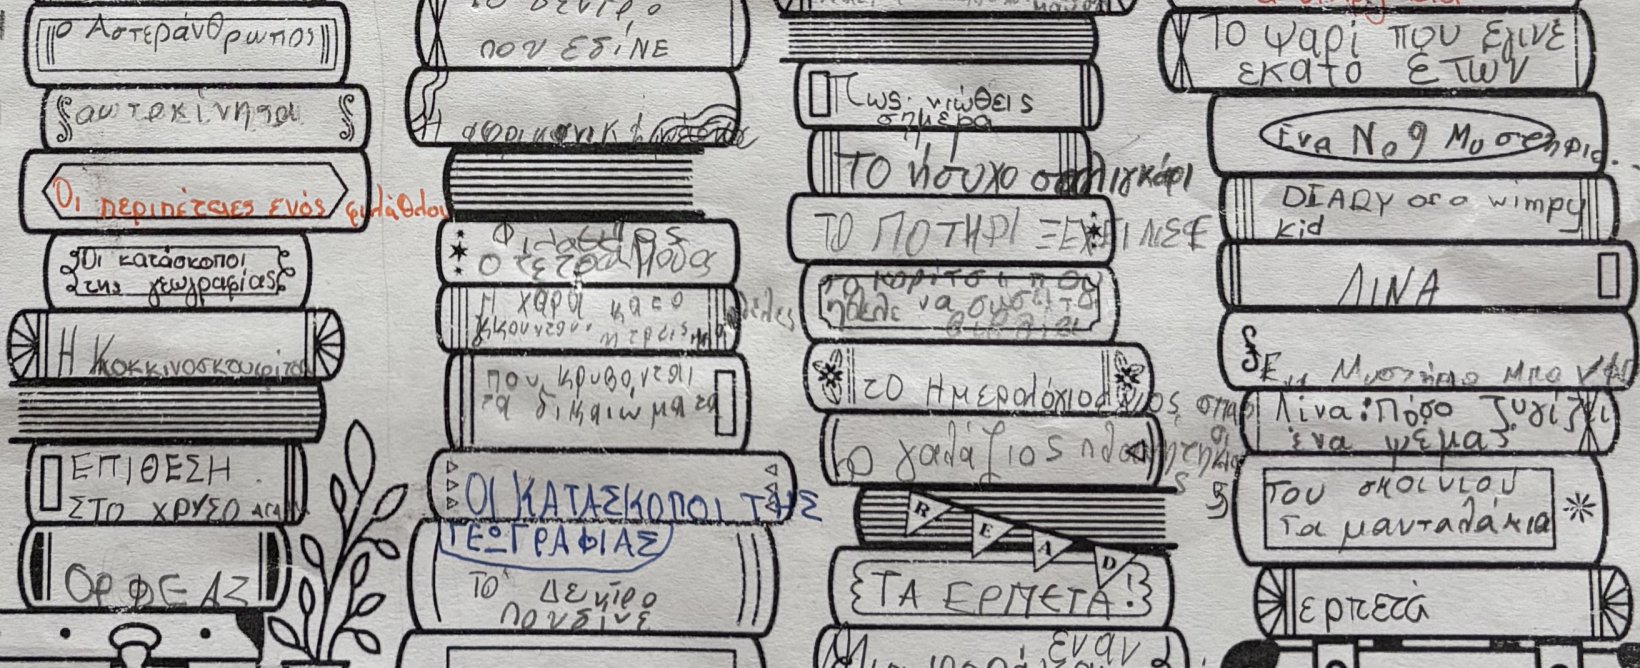 ο Αστεράνθρωπος
αυτοκίνητα
Οι περιπέτειες ενός φιλάθλου
Οι κατάσκοποι
της γεωγραφίας
Η Κοκκινοσκουφίτσα
ΕΠΙΘΕΣΗ
ΣΤΟ ΧΡΥΣΟ
ΟΡΦΕΑΣ
το δεντρο
που εδίΝΕ
Η αφρικανική
ο τετραποδος
Η χαρά και ο
που κρυβονται
τα δικαιώματα
ΟΙ ΚΑΤΑΣΚΟΠΟΙ ΤΗΣ
ΓΕΩΓΡΑΦΙΑΣ
Το Δεντρο
που δινε
Πως νιώθεις
σημερα
ΤΟ ήσυχο σαλιγκάρι
ΤΟ ΠΟΤΗΡΙ ΞΕΧΕΙΛΙΣΕ
το κορίτσι που
ήθελε να σώσει τα
βιβλία
το Ημερολόγιο ενός σπασ
ο γαλάζιος πλανήτης
R E A D
ΤΑ ΕΡΠΕΤΑ!
έναν
Το ψαρι που έγινε
εκατό ετών
Ενα Νο 9 Μυστηριο.
DIARY of a wimpy
kid
ΛΙΝΑ
Ενα Μυστήριο
Λίνα: Πόσο ζυγίζει
ένα ψέμα;
Του σκοινιού
τα μανταλάκια
ερπετά